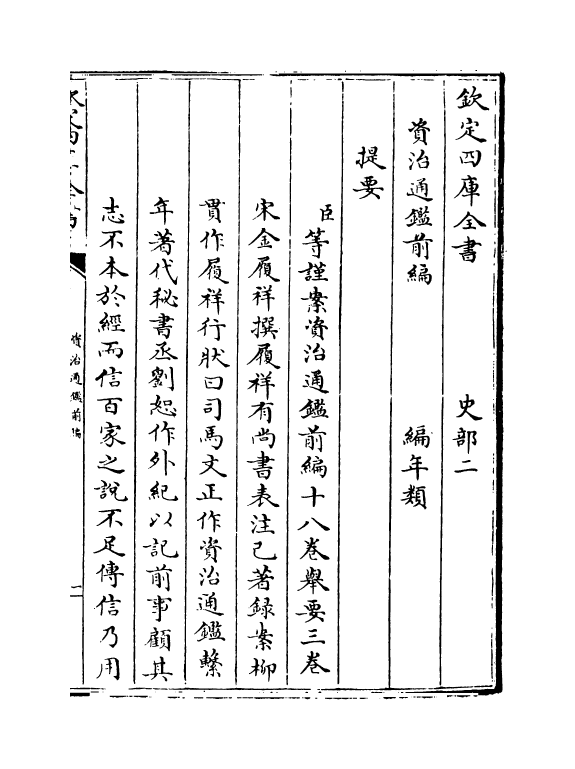 欽定四庫全書　史部二
資治通鑑前編　編年類
提要
臣等謹案資治通鑑前編十八卷舉要三卷
宋金履祥撰履祥有尚書表注已著録案柳
貫作履祥行狀曰司馬文正作資治通鑑繫
年著代秘書丞劉恕作外紀以記前事顧其
志不本於經而信百家之說不足傳信乃用
資治通鑑前編